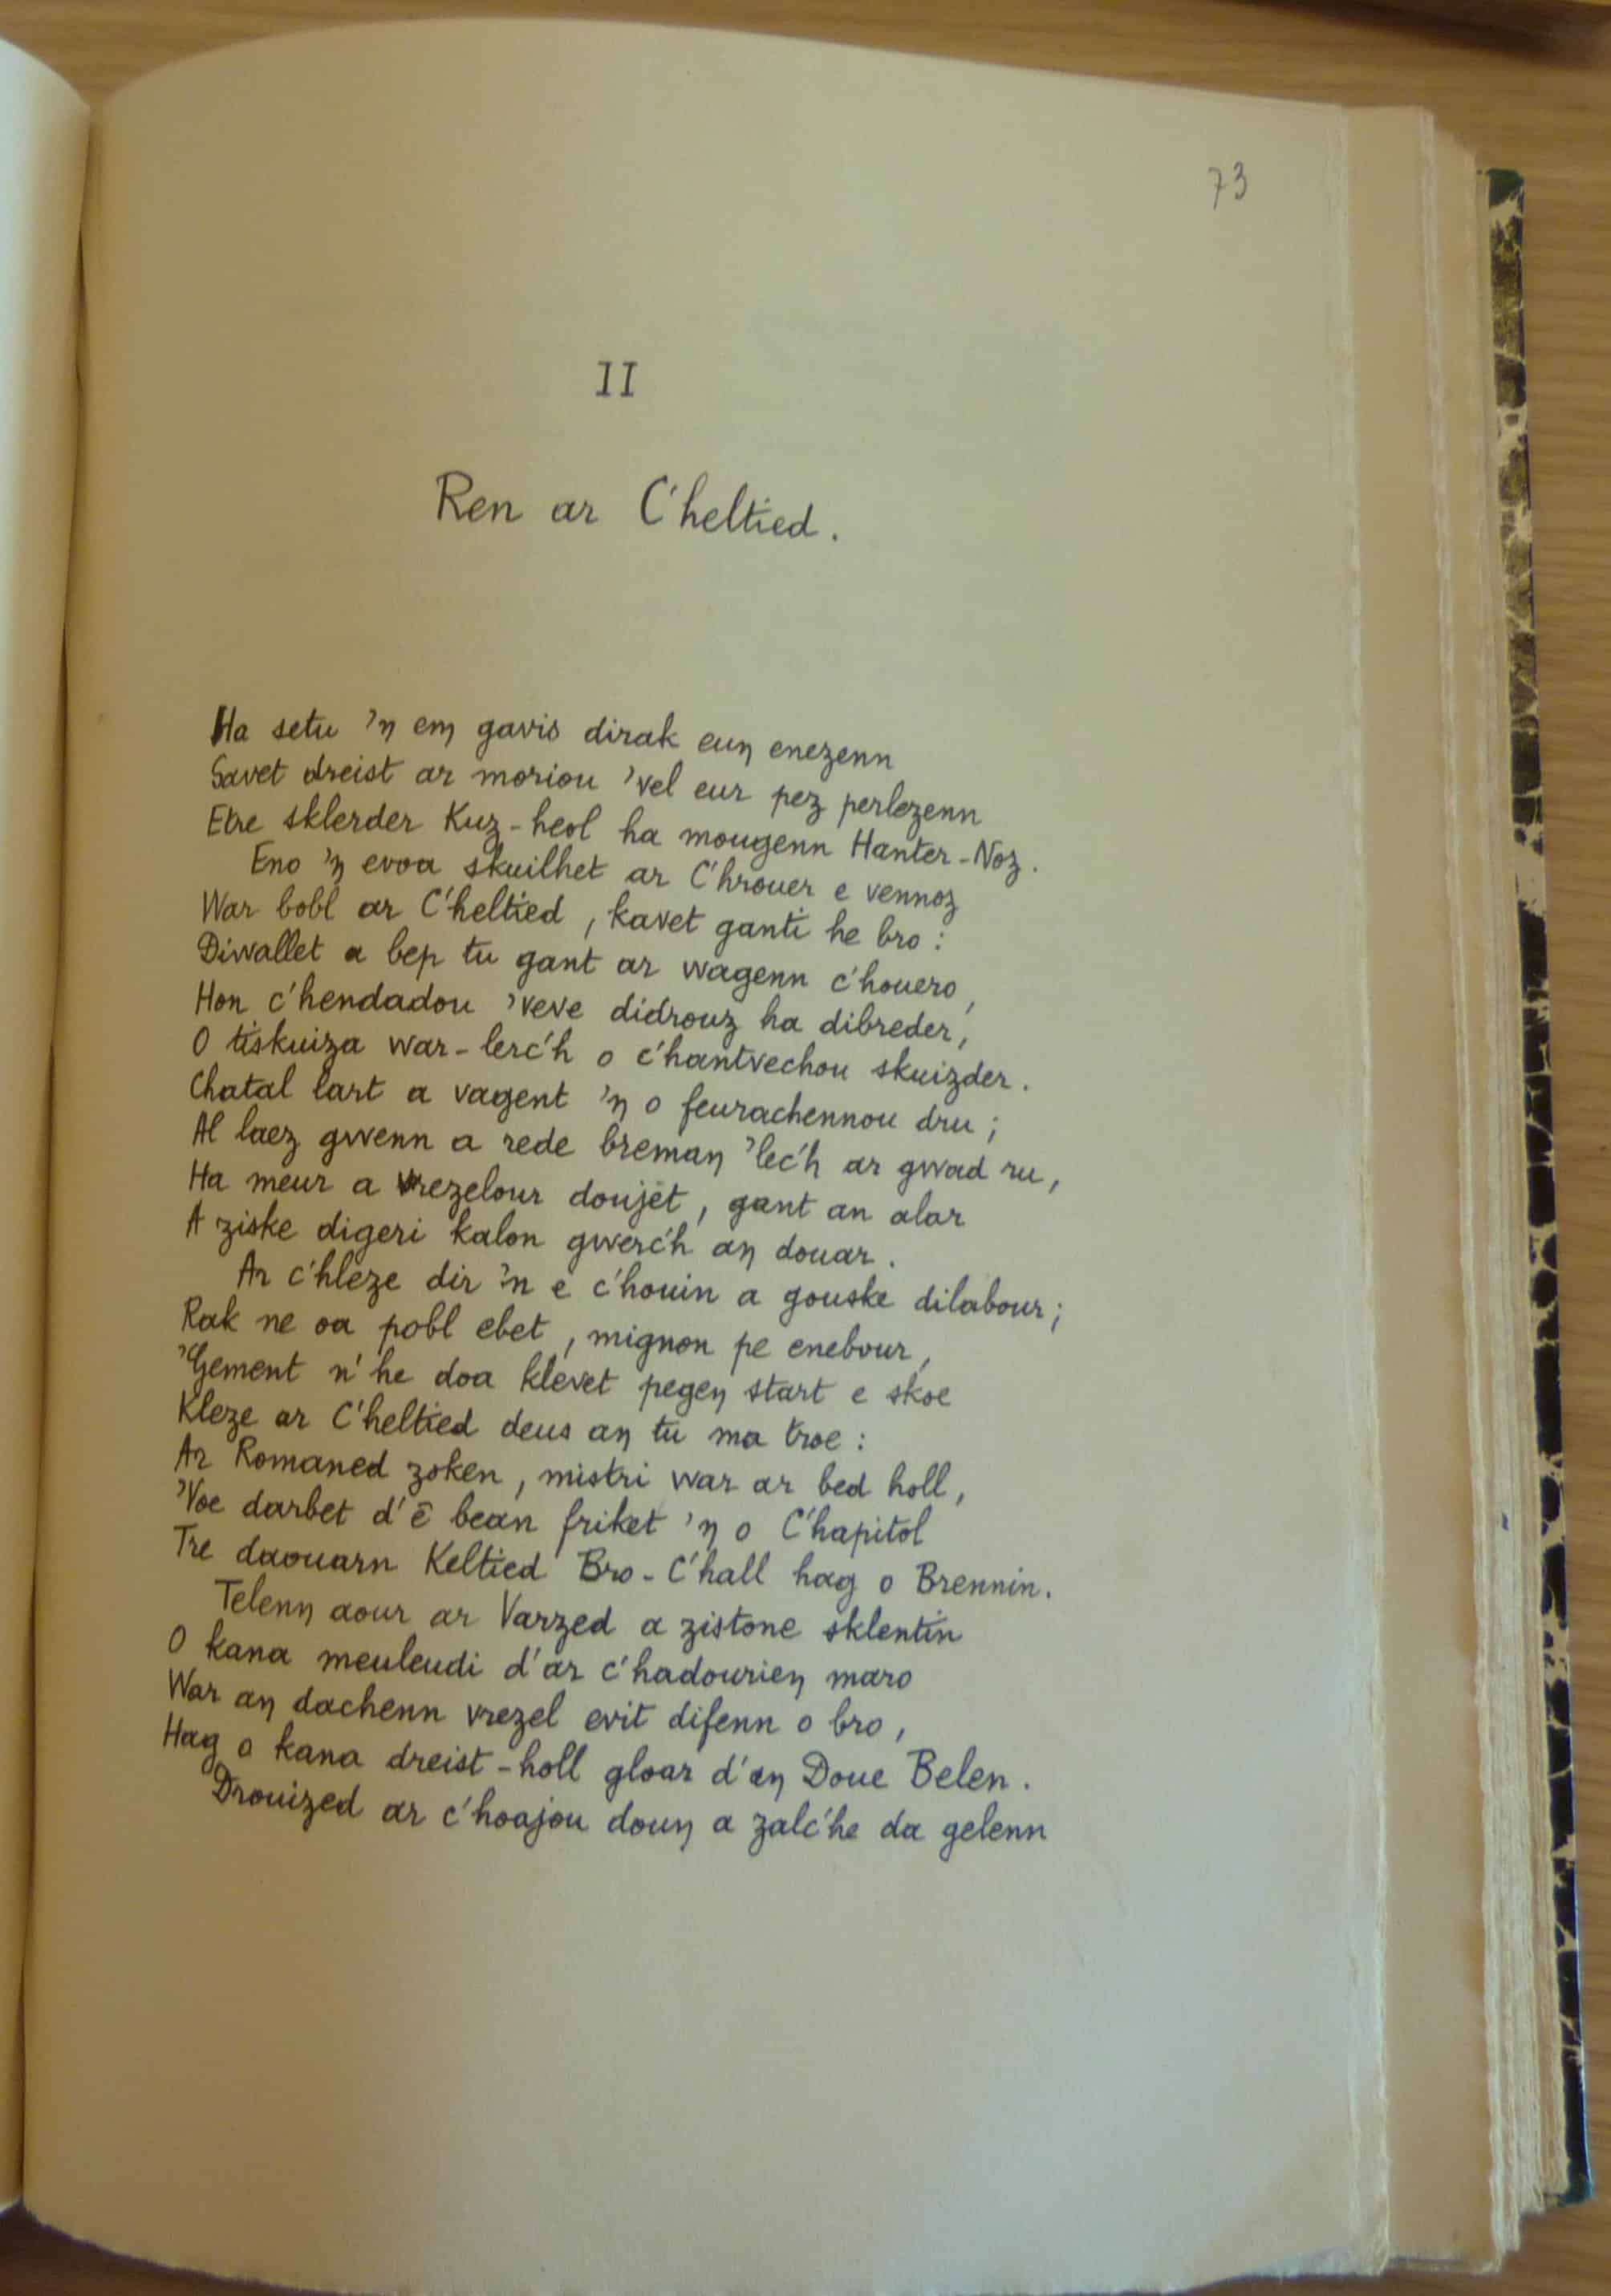 73
II
Ren ar C'heltied.
Ha setu 'ŋ eɱ gavis dirak euŋ enezenn
Savet dreist ar moriou 'vel eur pez perlezenn
Etre sklerder Kuz-heol ha mougenn Hanter-Noz.
Eno 'ŋ evoa skuilhet ar C'hrouer e vennoz
War bobl ar C'heltied, kavet ganti he bro:
Diwallet a bep tu gant ar wagenn c'houero,
Hon c'hendadou 'veve didrouz ha dibreder,
O tiskuiza war-lerc'h o c'hantvechou skuizder.
Chatal lart a vagent 'ŋ o feurachennou dru;
Al laez gwenn a rede bremaŋ 'lec'h ar gwad ru,
Ha meur a vrezelour doujet, gant an alar
A ziske digeri kalon gwerc'h aŋ douar.
Ar c'hleze dir 'n e c'houin a gouske dilabour;
Rak ne oa pobl ebet, mignon pe enebour,
'Gement n'he doa klevet pegeŋ start e skoe
Kleze ar C'heltied deus aŋ tu ma troe:
Ar Romaned zoken, mistri war ar bed holl,
'Voe darbet d'ē bean friket 'ŋ o C'hapitol
Tre daouarn Keltied Bro-C'hall hag o Brennin.
Telenŋ aour ar Varzed a zistone sklentin
O kana meuleudi d'ar c'hadourieŋ maro
War aŋ dachenn vrezel evit difenn o bro,
Hag o kana dreist-holl gloar d'aŋ Doue Belen.
Drouized ar c'hoajou douŋ a zalc'he da gelenn